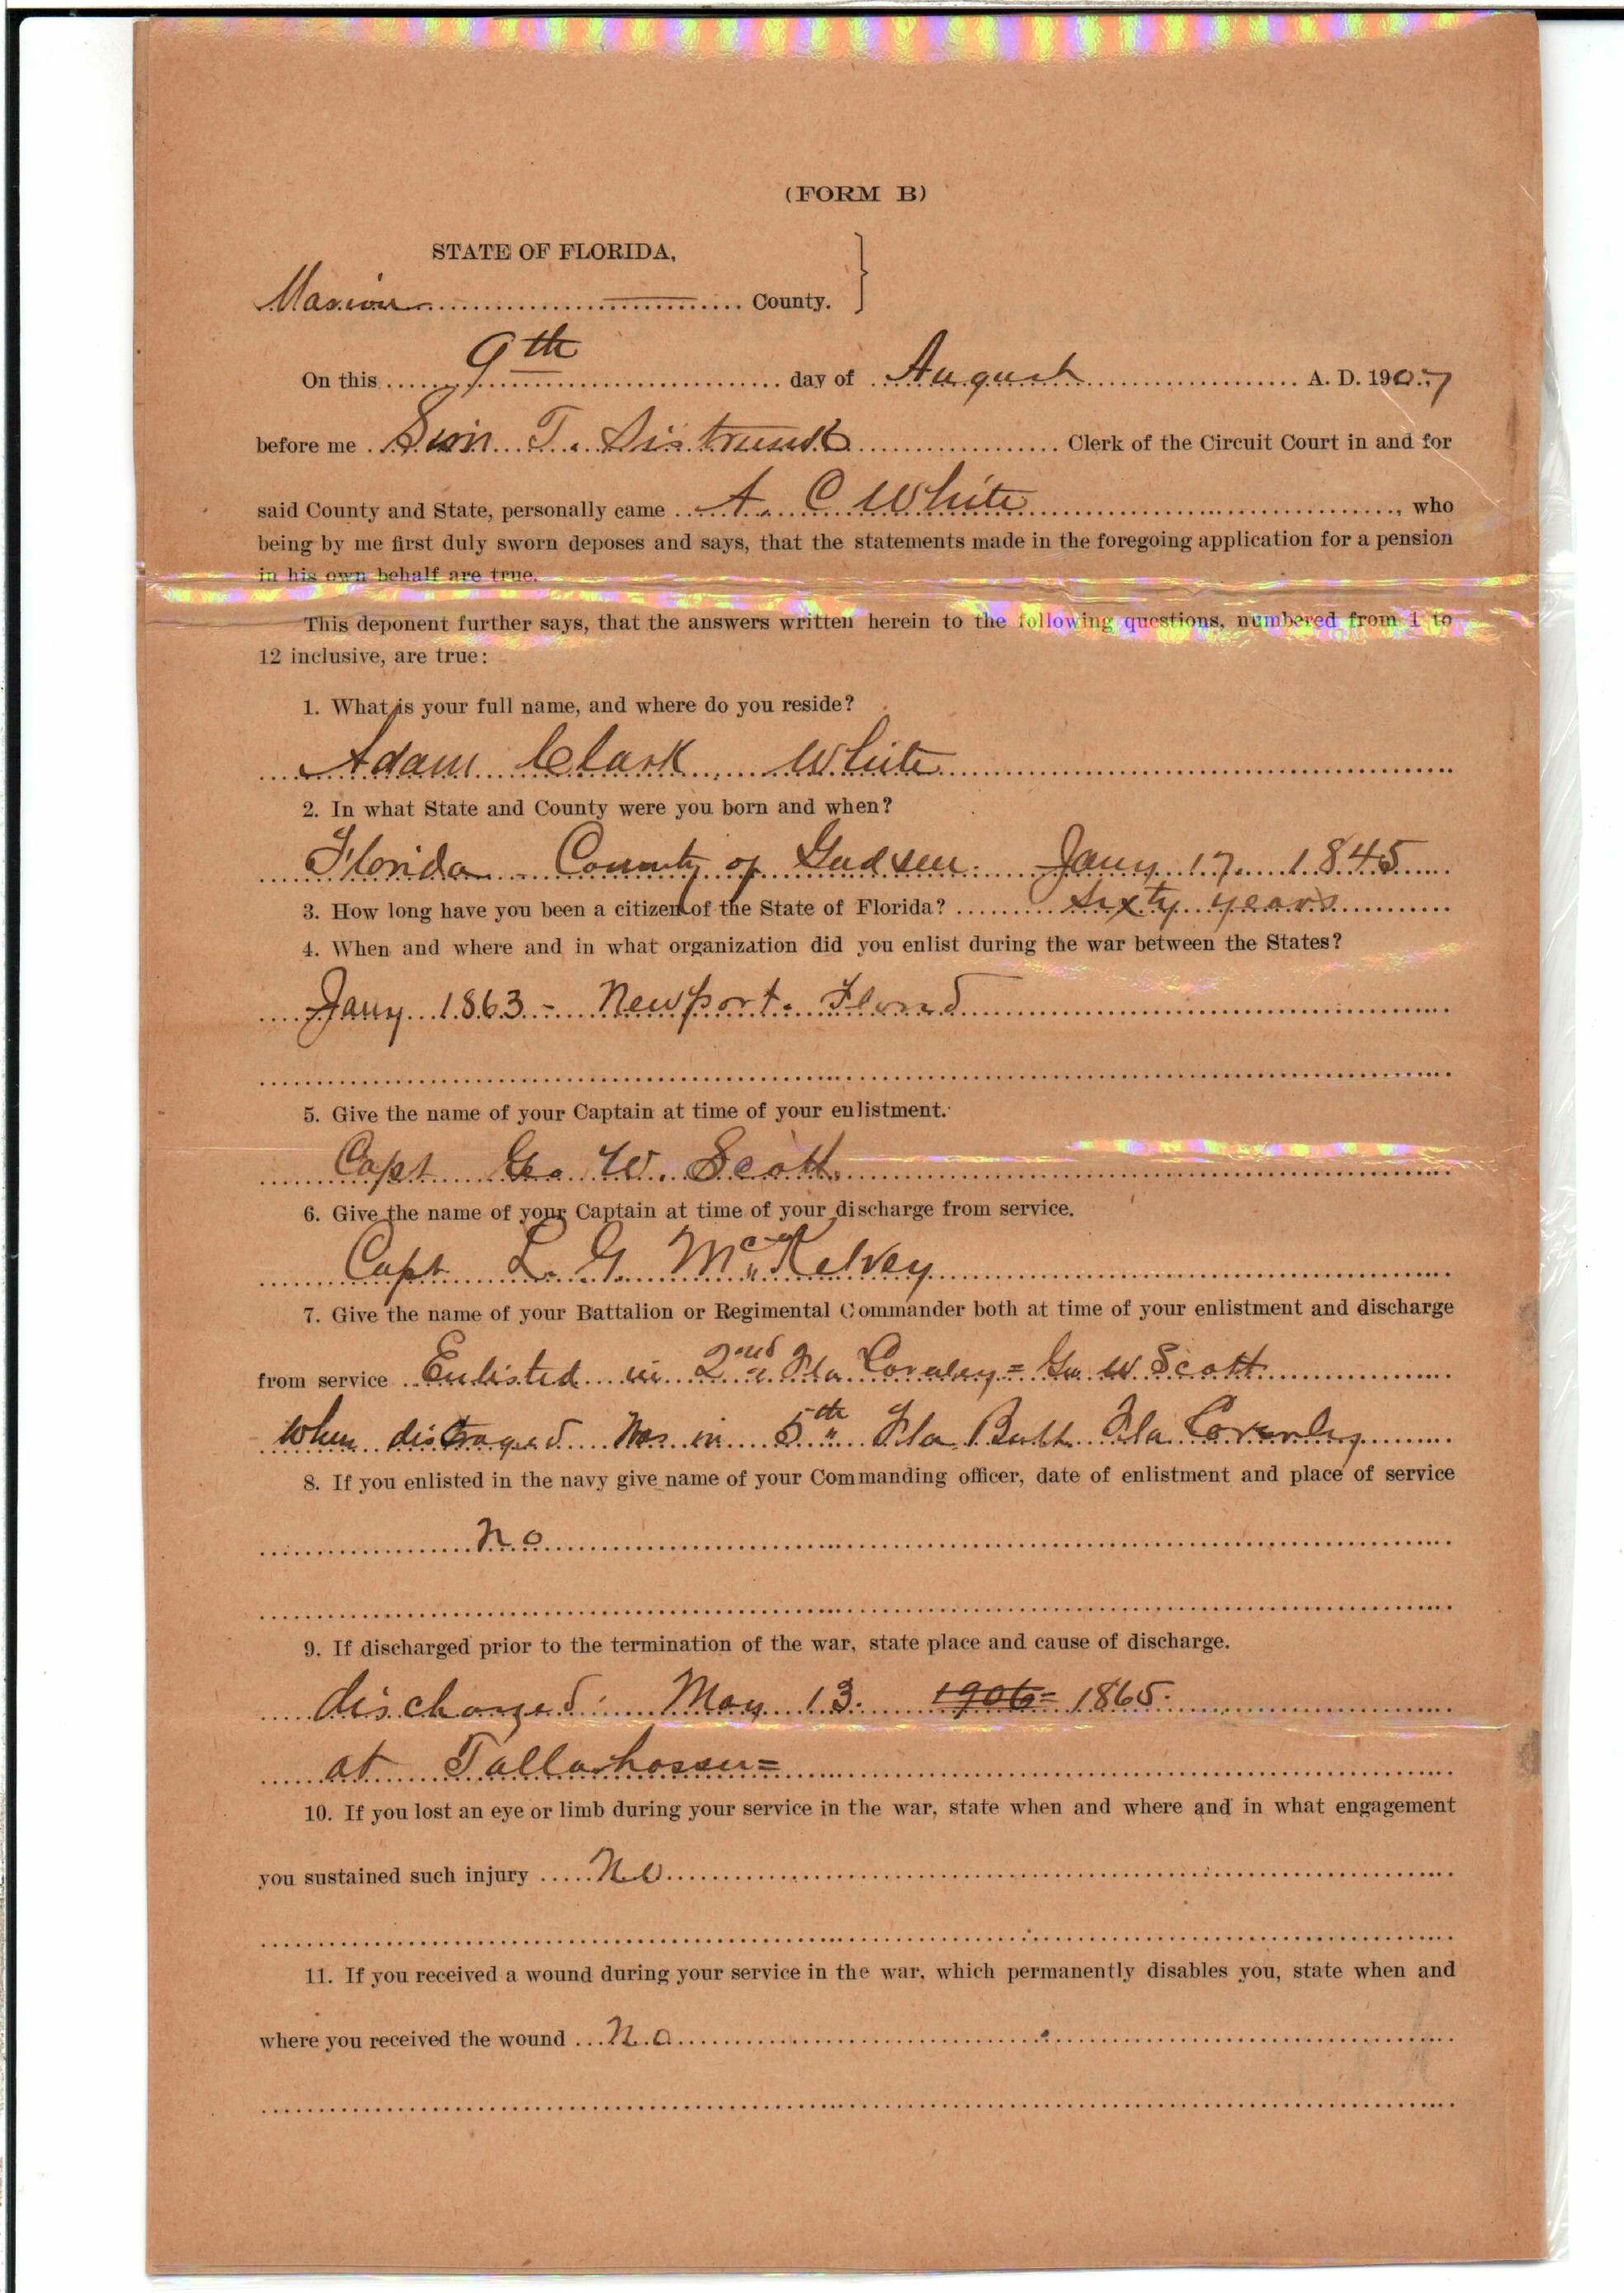 (FORM B)
STATE OF FLORIDA,
Marion County.
On this 9th day of August A. D. 1907
before me Sim T. Sistrunk Clerk of the Circuit Court in and for
said County and State, personally came A. C White, who
being by me first duly sworn deposes and says, that the statements made in the foregoing application for a pension
in his own behalf are true.
This deponent further says, that the answers written herein to the following questions, numbered from 1 to
12 inclusive, are true:
1. What is your full name, and where do you reside?
Adam Clark White
2. In what State and County were you born and when?
Florida County of Gadsen. Jany 17 1845
3. How long have you been a citizen of the State of Florida? sixty years
4. When and where and in what organization did you enlist during the war between the States?
Jany 1863 - Newport.
5. Give the name of your Captain at time of your enlistment.
Capt Geo W. Scott
6. Give the name of your Captain at time of your discharge from service.
Capt L. G. McKelvey
7. Give the name of your Battalion or Regimental Commander both at time of your enlistment and discharge
from service Enlisted in 2nd Fla Cavalry = Geo W Scott
When was in 5th Fla Batt Fla Cavalry
8. If you enlisted in the navy give name of your Commanding officer, date of enlistment and place of service
No
9. If discharged prior to the termination of the war, state place and cause of discharge.
discharged. May 13. 1906= 1865.
at Tallahassee=
10. If you lost an eye or limb during your service in the war, state when and where and in what engagement
you sustained such injury No
11. If you received a wound during your service in the war, which permanently disables you, state when and
where you received the wound No